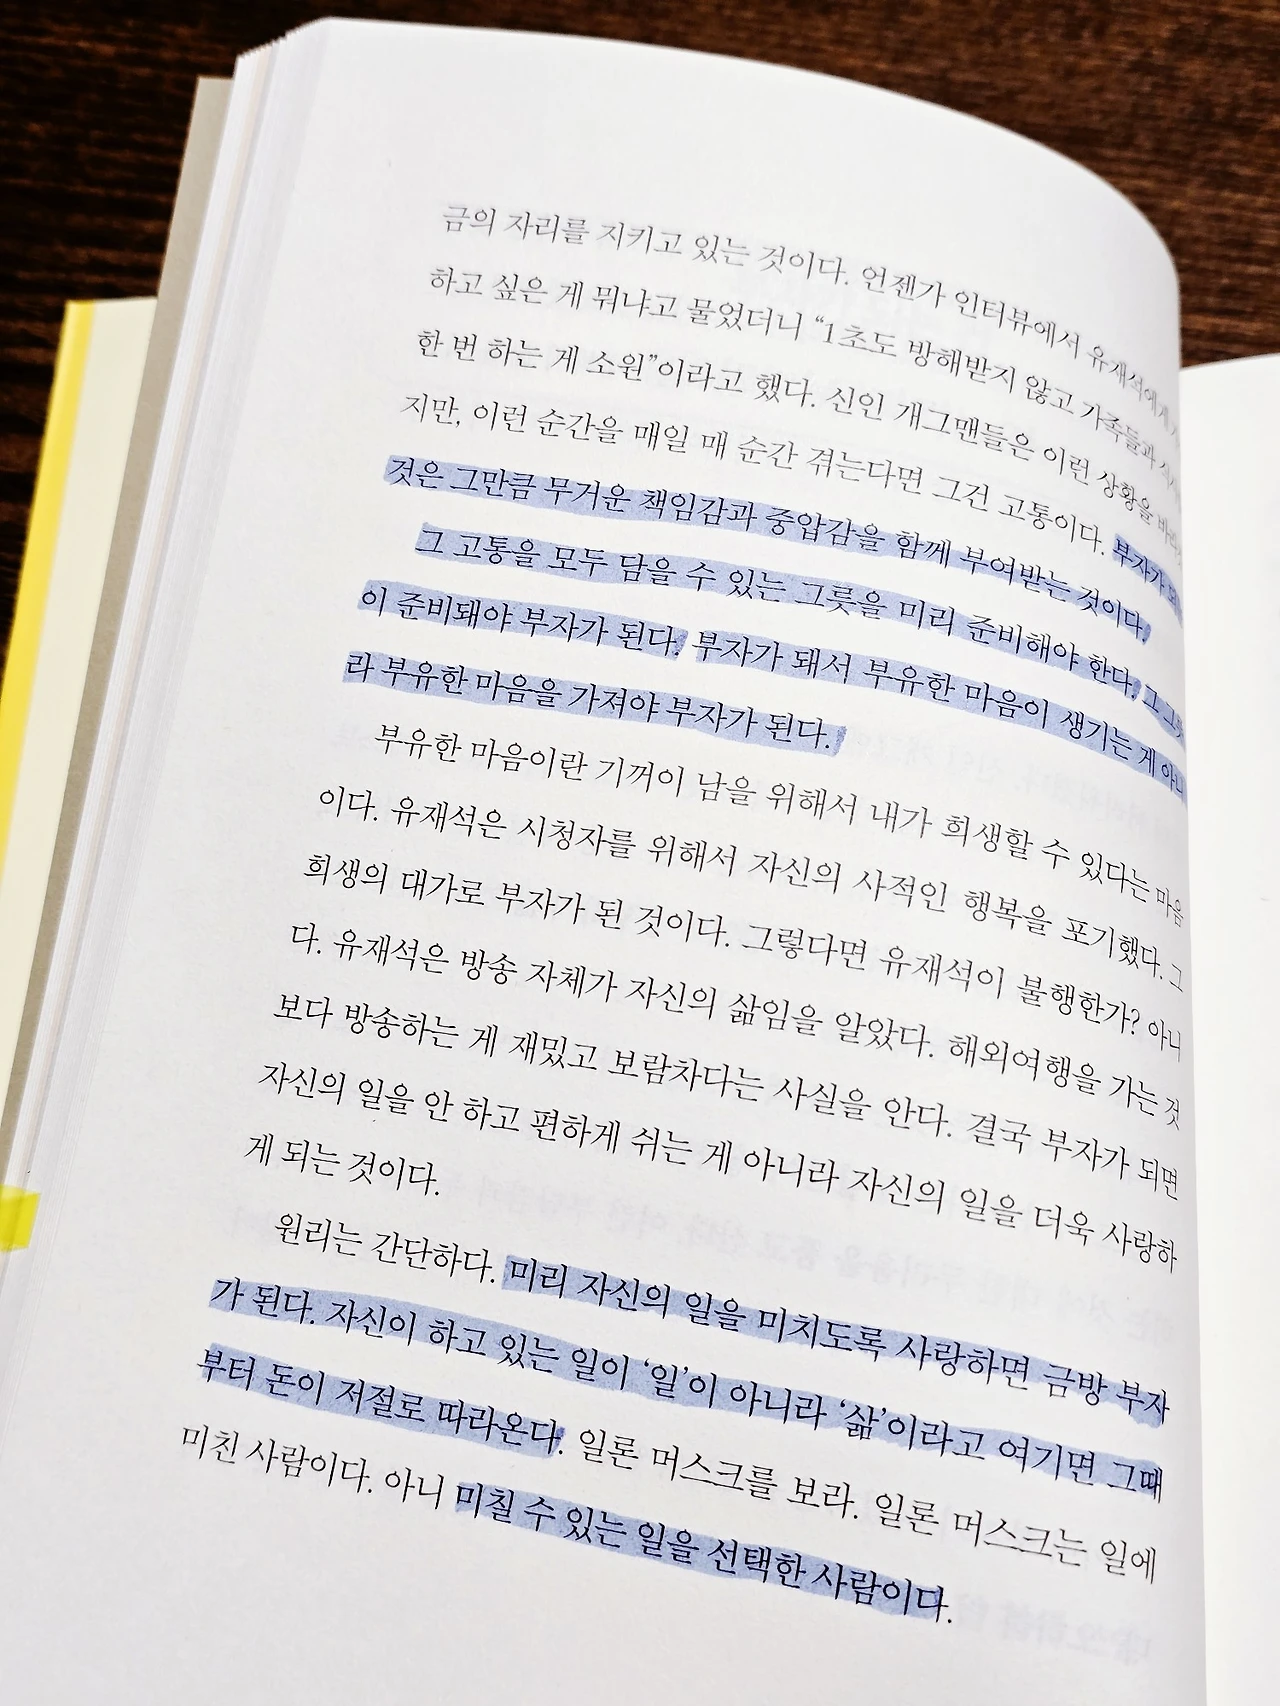 금의 자리를 지키고 있는 것이다. 언젠가 인터뷰에서 유재석에게
하고 싶은 게 뭐냐고 물었더니 “1초도 방해받지 않고 가족들과
한 번 하는 게 소원”이라고 했다. 신인 개그맨들은 이런 상황을
지만, 이런 순간을 매일 매 순간 겪는다면 그건 고통이다. 부자가
것은 그만큼 무거운 책임감과 중압감을 함께 부여받는 것이다.
그 고통을 모두 담을 수 있는 그릇을 미리 준비해야 한다. 그
이 준비돼야 부자가 된다. 부자가 돼서 부유한 마음이 생기는 게 아니
라 부유한 마음을 가져야 부자가 된다.
부유한 마음이란 기꺼이 남을 위해서 내가 희생할 수 있다는 마음
이다. 유재석은 시청자를 위해서 자신의 사적인 행복을 포기했다. 그
희생의 대가로 부자가 된 것이다. 그렇다면 유재석이 불행한가? 아니
다. 유재석은 방송 자체가 자신의 삶임을 알았다. 해외여행을 가는 것
보다 방송하는 게 재밌고 보람차다는 사실을 안다. 결국 부자가 되면
자신의 일을 안 하고 편하게 쉬는 게 아니라 자신의 일을 더욱 사랑하
게 되는 것이다.
원리는 간단하다. 미리 자신의 일을 미치도록 사랑하면 금방 부자
가 된다. 자신이 하고 있는 일이 ‘일’이 아니라 ‘삶’이라고 여기면 그때
부터 돈이 저절로 따라온다. 일론 머스크를 보라. 일론 머스크는 일에
미친 사람이다. 아니 미칠 수 있는 일을 선택한 사람이다.